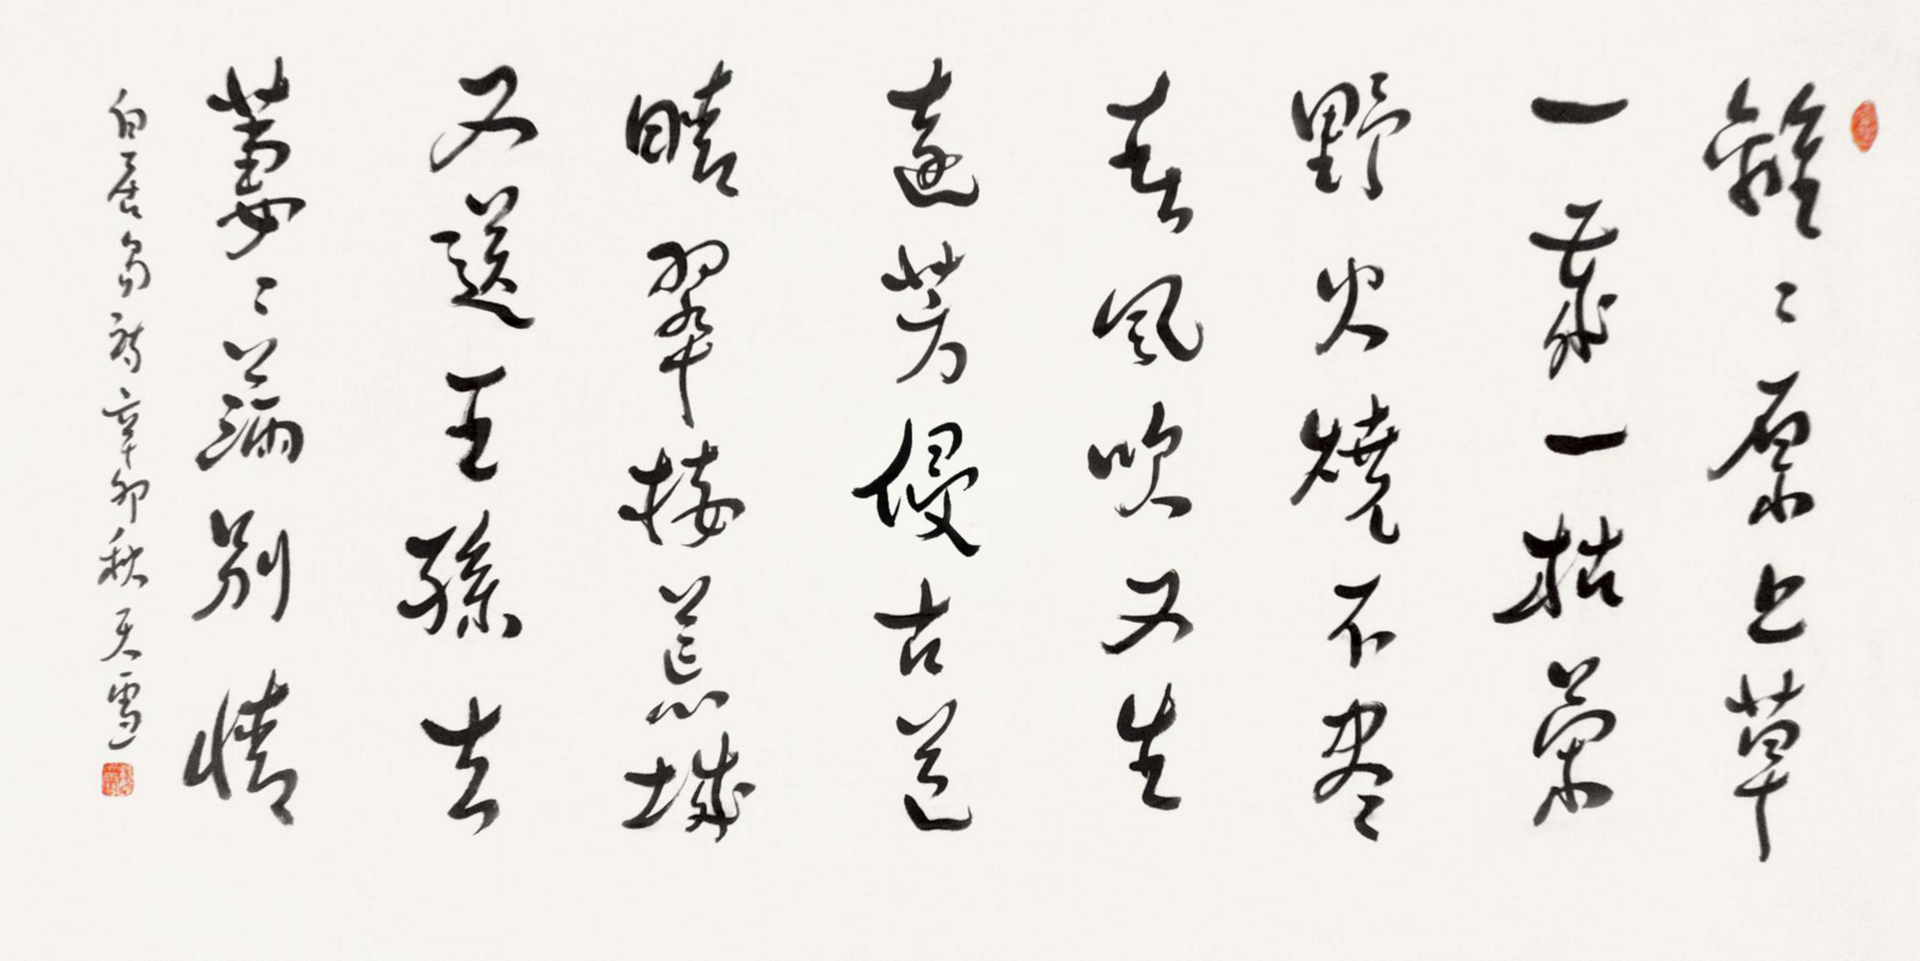 離々原上草
一歲一枯榮
野火燒不盡
春風吹又生
遠芳侵古道
晴翠接荒城
又送王孫去
萋々滿別情
白居易詩 辛卯秋 天雪